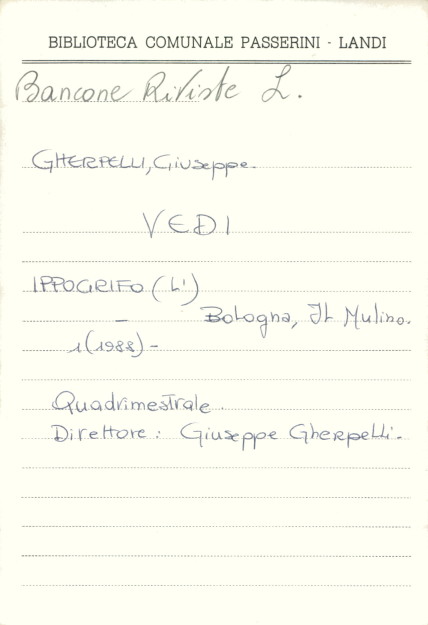 BIBLIOTECA COMUNALE PASSERINI - LANDI
Bancone Riviste L.
GHERPELLI, Giuseppe.
VEDI
IPPOGRIFO (L')
– Bologna, Il Mulino.
1(1988) -
Quadrimestrale.
Direttore: Giuseppe Gherpelli.